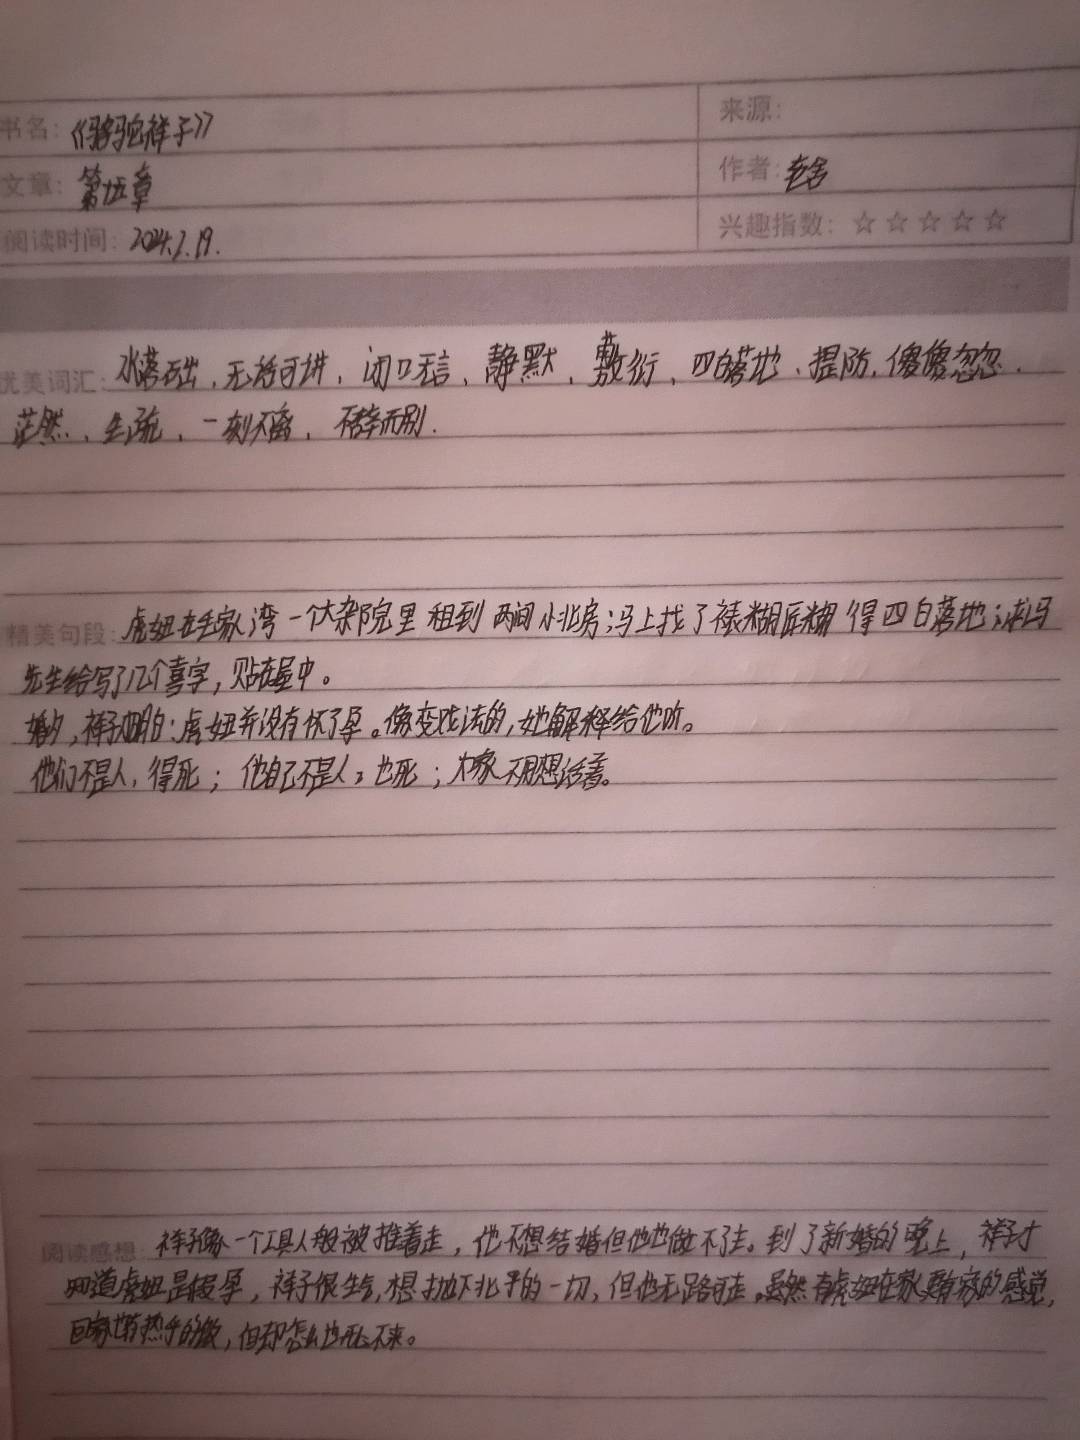 书名：《骆驼祥子》
来源：
文章：第十五章
作者：老舍
阅读时间：2024.2.19.
兴趣指数：☆☆☆☆☆
优美词汇：水落石出、无话可讲、闭口无言、静默、敷衍、四白落地、提防、傻傻忽忽、
茫然、生疏、一刻不离、不辞而别.
精美句段：虎妞在毛家湾一个大杂院里租到两间小北房；马上找了裱糊匠糊得四白落地；求冯
先生给写了几个喜字，贴在屋中。
婚夕，祥子才明白：虎妞并没有怀了孕。像变戏法的，她解释给他听。
他们不是人，得死；他自己不是人，也死；大家不用想活着。
阅读感想：祥子像一个工具人般被推着走，他不想结婚但他也做不了主。到了新婚的晚上，祥子才
知道虎妞是假孕，祥子很生气，想抛下北平的一切，但他无路可走。虽然有虎妞在家更有家的感觉，
回家也有热乎的饭，但却怎么也